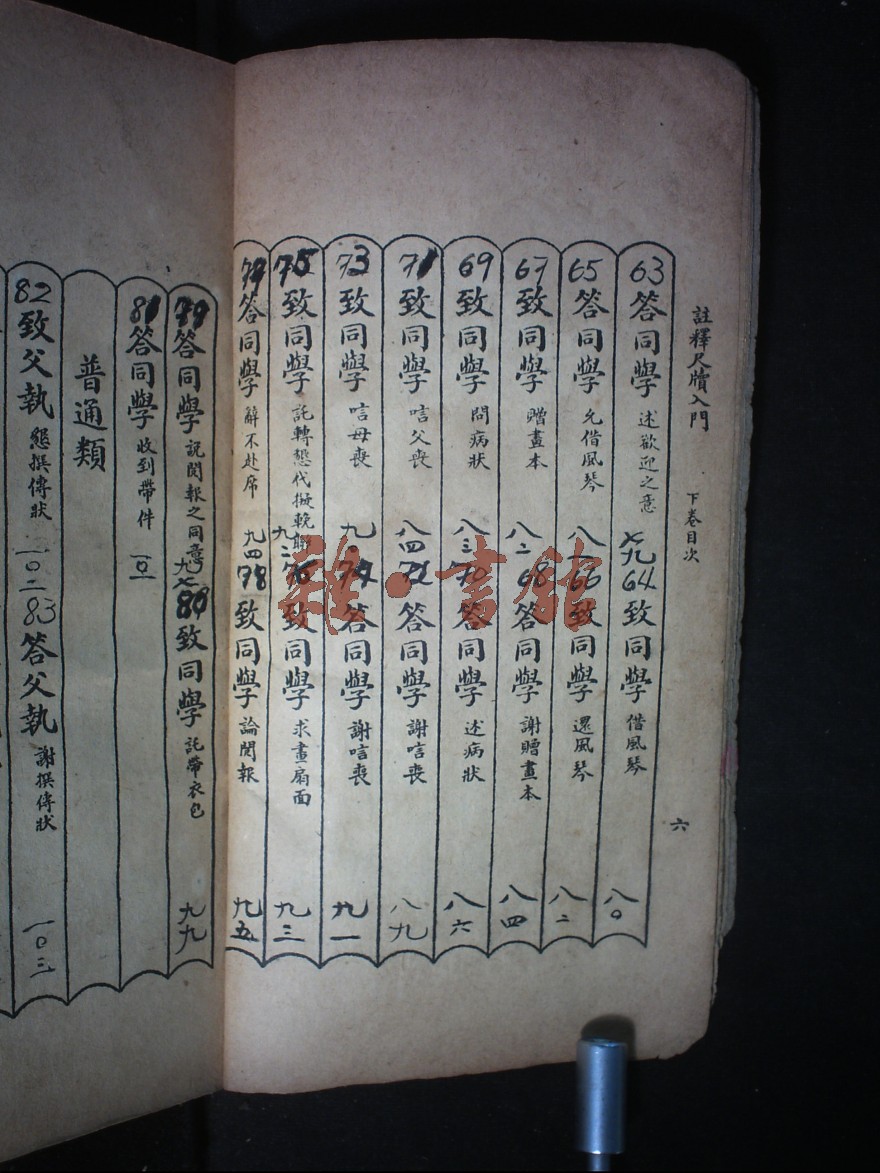 註釋尺牘入門 下卷目次 六
63 答同學 述歡迎之意 七九 64 致同學 借風琴 八〇
65 答同學 允借風琴 八一 66 致同學 還風琴 八二
67 致同學 贈畫本 八二 68 答同學 謝贈畫本 八四
69 致同學 問病狀 八三 70 答同學 述病狀 八六
71 致同學 唁父喪 八四 72 答同學 謝唁喪 八九
73 致同學 唁母喪 九〇 74 答同學 謝唁喪 九一
75 致同學 託轉懇代擬輓聯 九二 76 致同學 求畫扇面 九三
77 答同學 辭不赴席 九四 78 致同學 論閱報 九五
79 答同學 說閱報之同意 九七 80 致同學 託帶衣包 九九
81 答同學 收到帶件
普通類
82 致父執 懇撰傳狀 一〇二 83 答父執 謝撰傳狀 一〇三
雜·書館